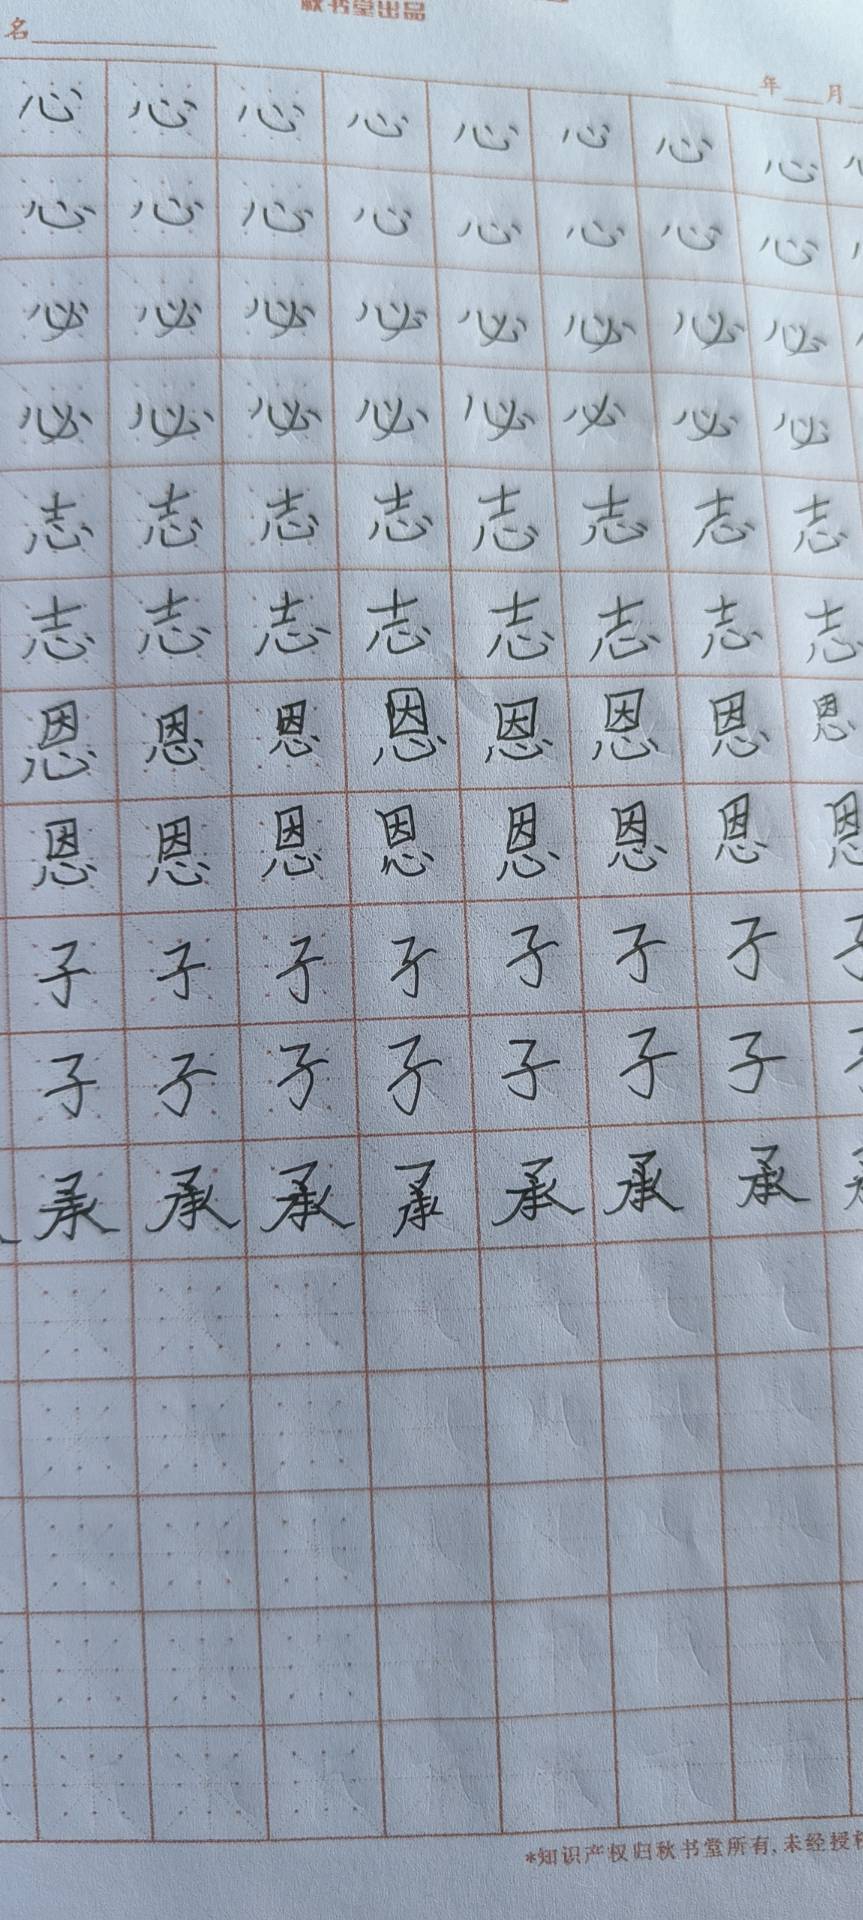 秋书堂出品
名
年 月
心 心 心 心 心 心 心 心
心 心 心 心 心 心 心 心
必 必 必 必 必 必 必 必
必 必 必 必 必 必 必 必
志 志 志 志 志 志 志 志
志 志 志 志 志 志 志 志
恩 恩 恩 恩 恩 恩 恩 恩
恩 恩 恩 恩 恩 恩 恩 恩
子 子 子 子 子 子 子 子
子 子 子 子 子 子 子
承 承 承 承 承 承 承
*知识产权归秋书堂所有,未经授权